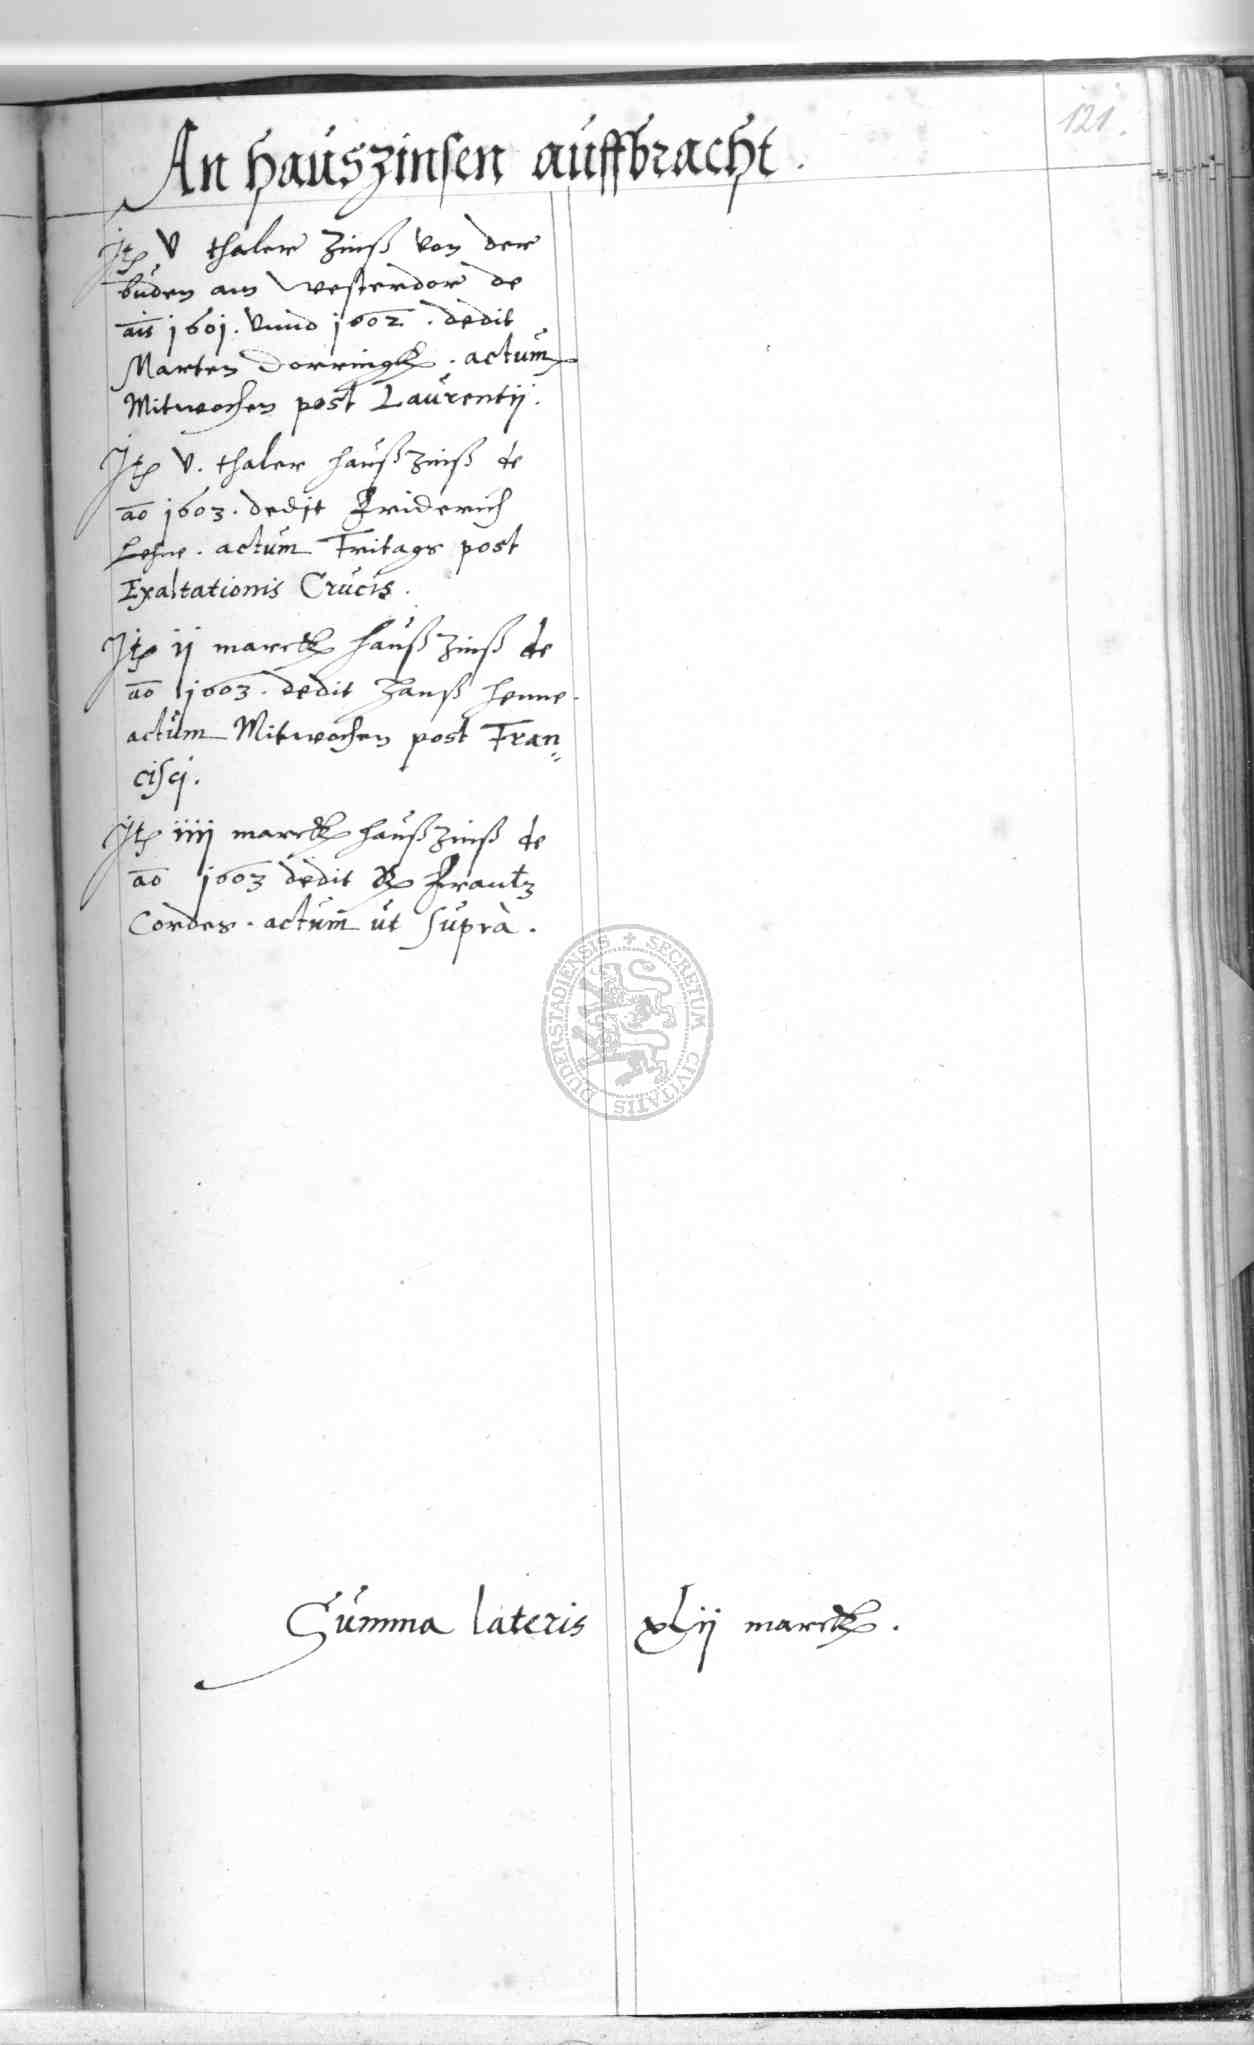 121.
An hauszinsen auffbracht.
Itē v thaler Zinß von der
buden am Westerdor de
aīs 1601. vnnd 1602. dedit
Marten Dorringk. actum
Mitwochen post Laurentij.
Itē v. thaler haußzinß de
aō 1603. dedit Friderich
Lehne. actum Fritags post
Exaltationis Crucis.
Itē ij marck haußzinß de
aō 1603. dedit Hanß Henne.
actum Mitwochen post Fran=
cisci.
Itē iiij marck haußzinß de
aō 1603 dedit Frantz
Cordes. actum ut supra.
SECRETUM CIVITATIS DUDERSTADIENSIS
Summa lateris xlij marck.